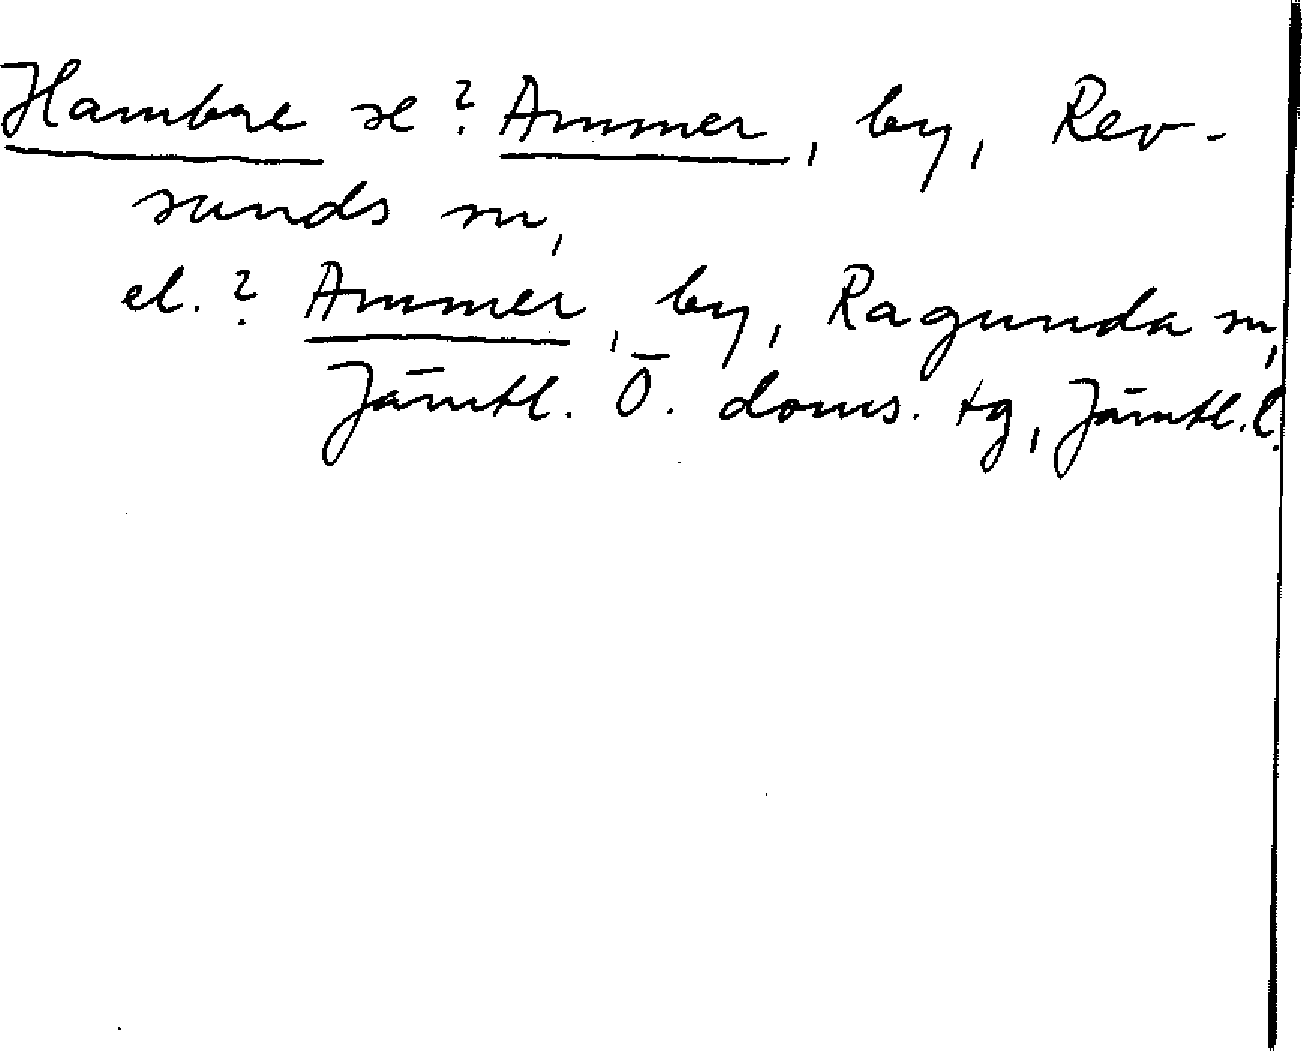 Hambre se? Ammer, by, Rev-
sunds sn,
el.? Ammer, by, Ragunda sn,
Jämtl. Ö. doms. tg, Jämtl. l.